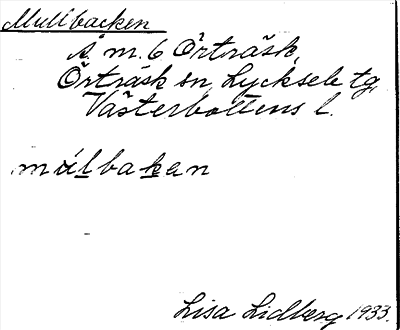 Mullbacken
å. m. 6 Örträsk,
Örträsk sn, Lycksele tg,
Västerbottens l.
múlbakan
Lisa Lidberg 1933.